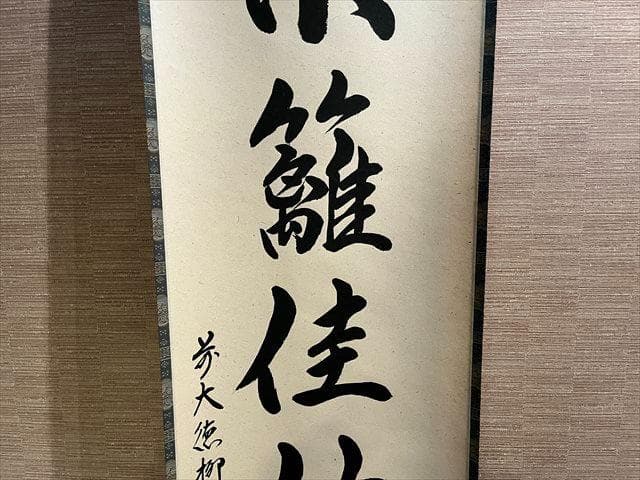 籬佳
前大徳柳